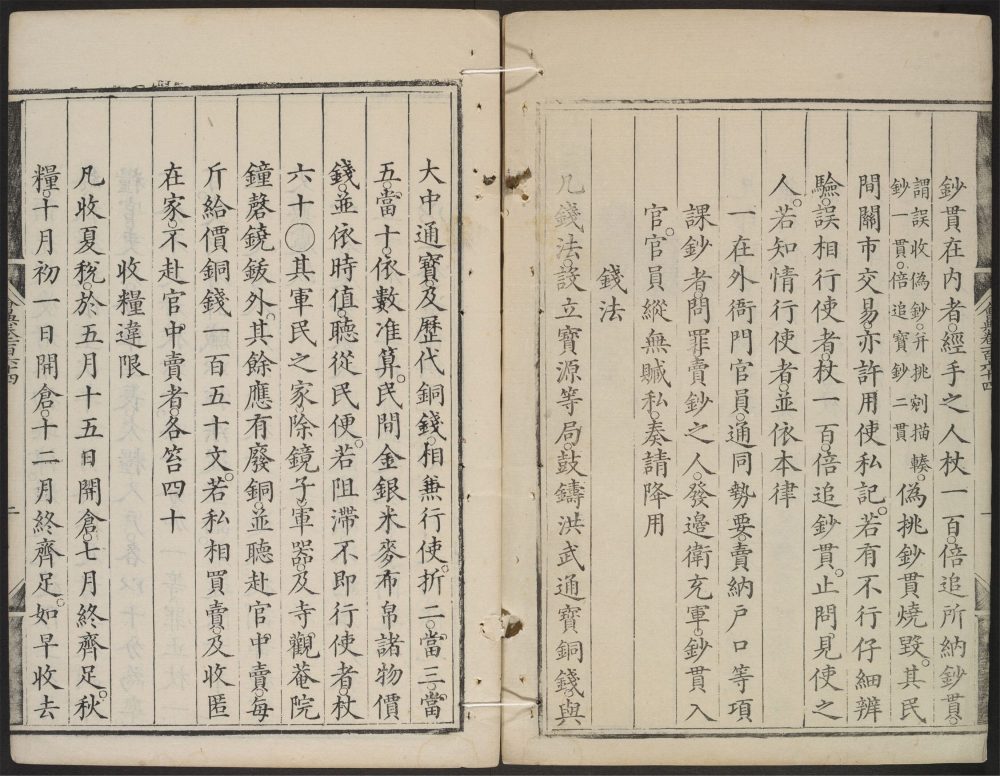 鈔貫在内者。經手之人杖一百。倍追所納鈔貫。
謂誤收偽鈔。并挑剜描輳
鈔一貫。倍追寶鈔二貫
偽挑鈔貫燒毀。其民
間關市交易。亦許用使私記。若有不行仔細辨
驗。誤相行使者。杖一百。倍追鈔貫。止問見使之
人。若知情行使者。並依本律
一在外衙門官員。通同勢要。賣納戶口等項
課鈔者。問罪。賣鈔之人。發邊衛充軍。鈔貫入
官。官員縱無贓私。奏請降用
錢法
凡錢法。設立寶源等局。鼓鑄洪武通寶銅錢。與
大中通寶。及歷代銅錢。相兼行使。折二。當三。當
五。當十。依數准算。民間金銀米麥布帛諸物價
錢。並依時值。聽從民便。若阻滯不即行使者。杖
六十〇其軍民之家。除鏡子。軍器。及寺觀菴院
鐘磬鐃鈸外。其餘應有廢銅。並聽赴官中賣。每
斤給價銅錢一百五十文。若私相買賣。及收匿
在家。不赴官中賣者。各笞四十
收糧違限
凡收夏稅。於五月十五日開倉。七月終齊足。秋
糧。十月初一日開倉。十二月終齊足。如早收去